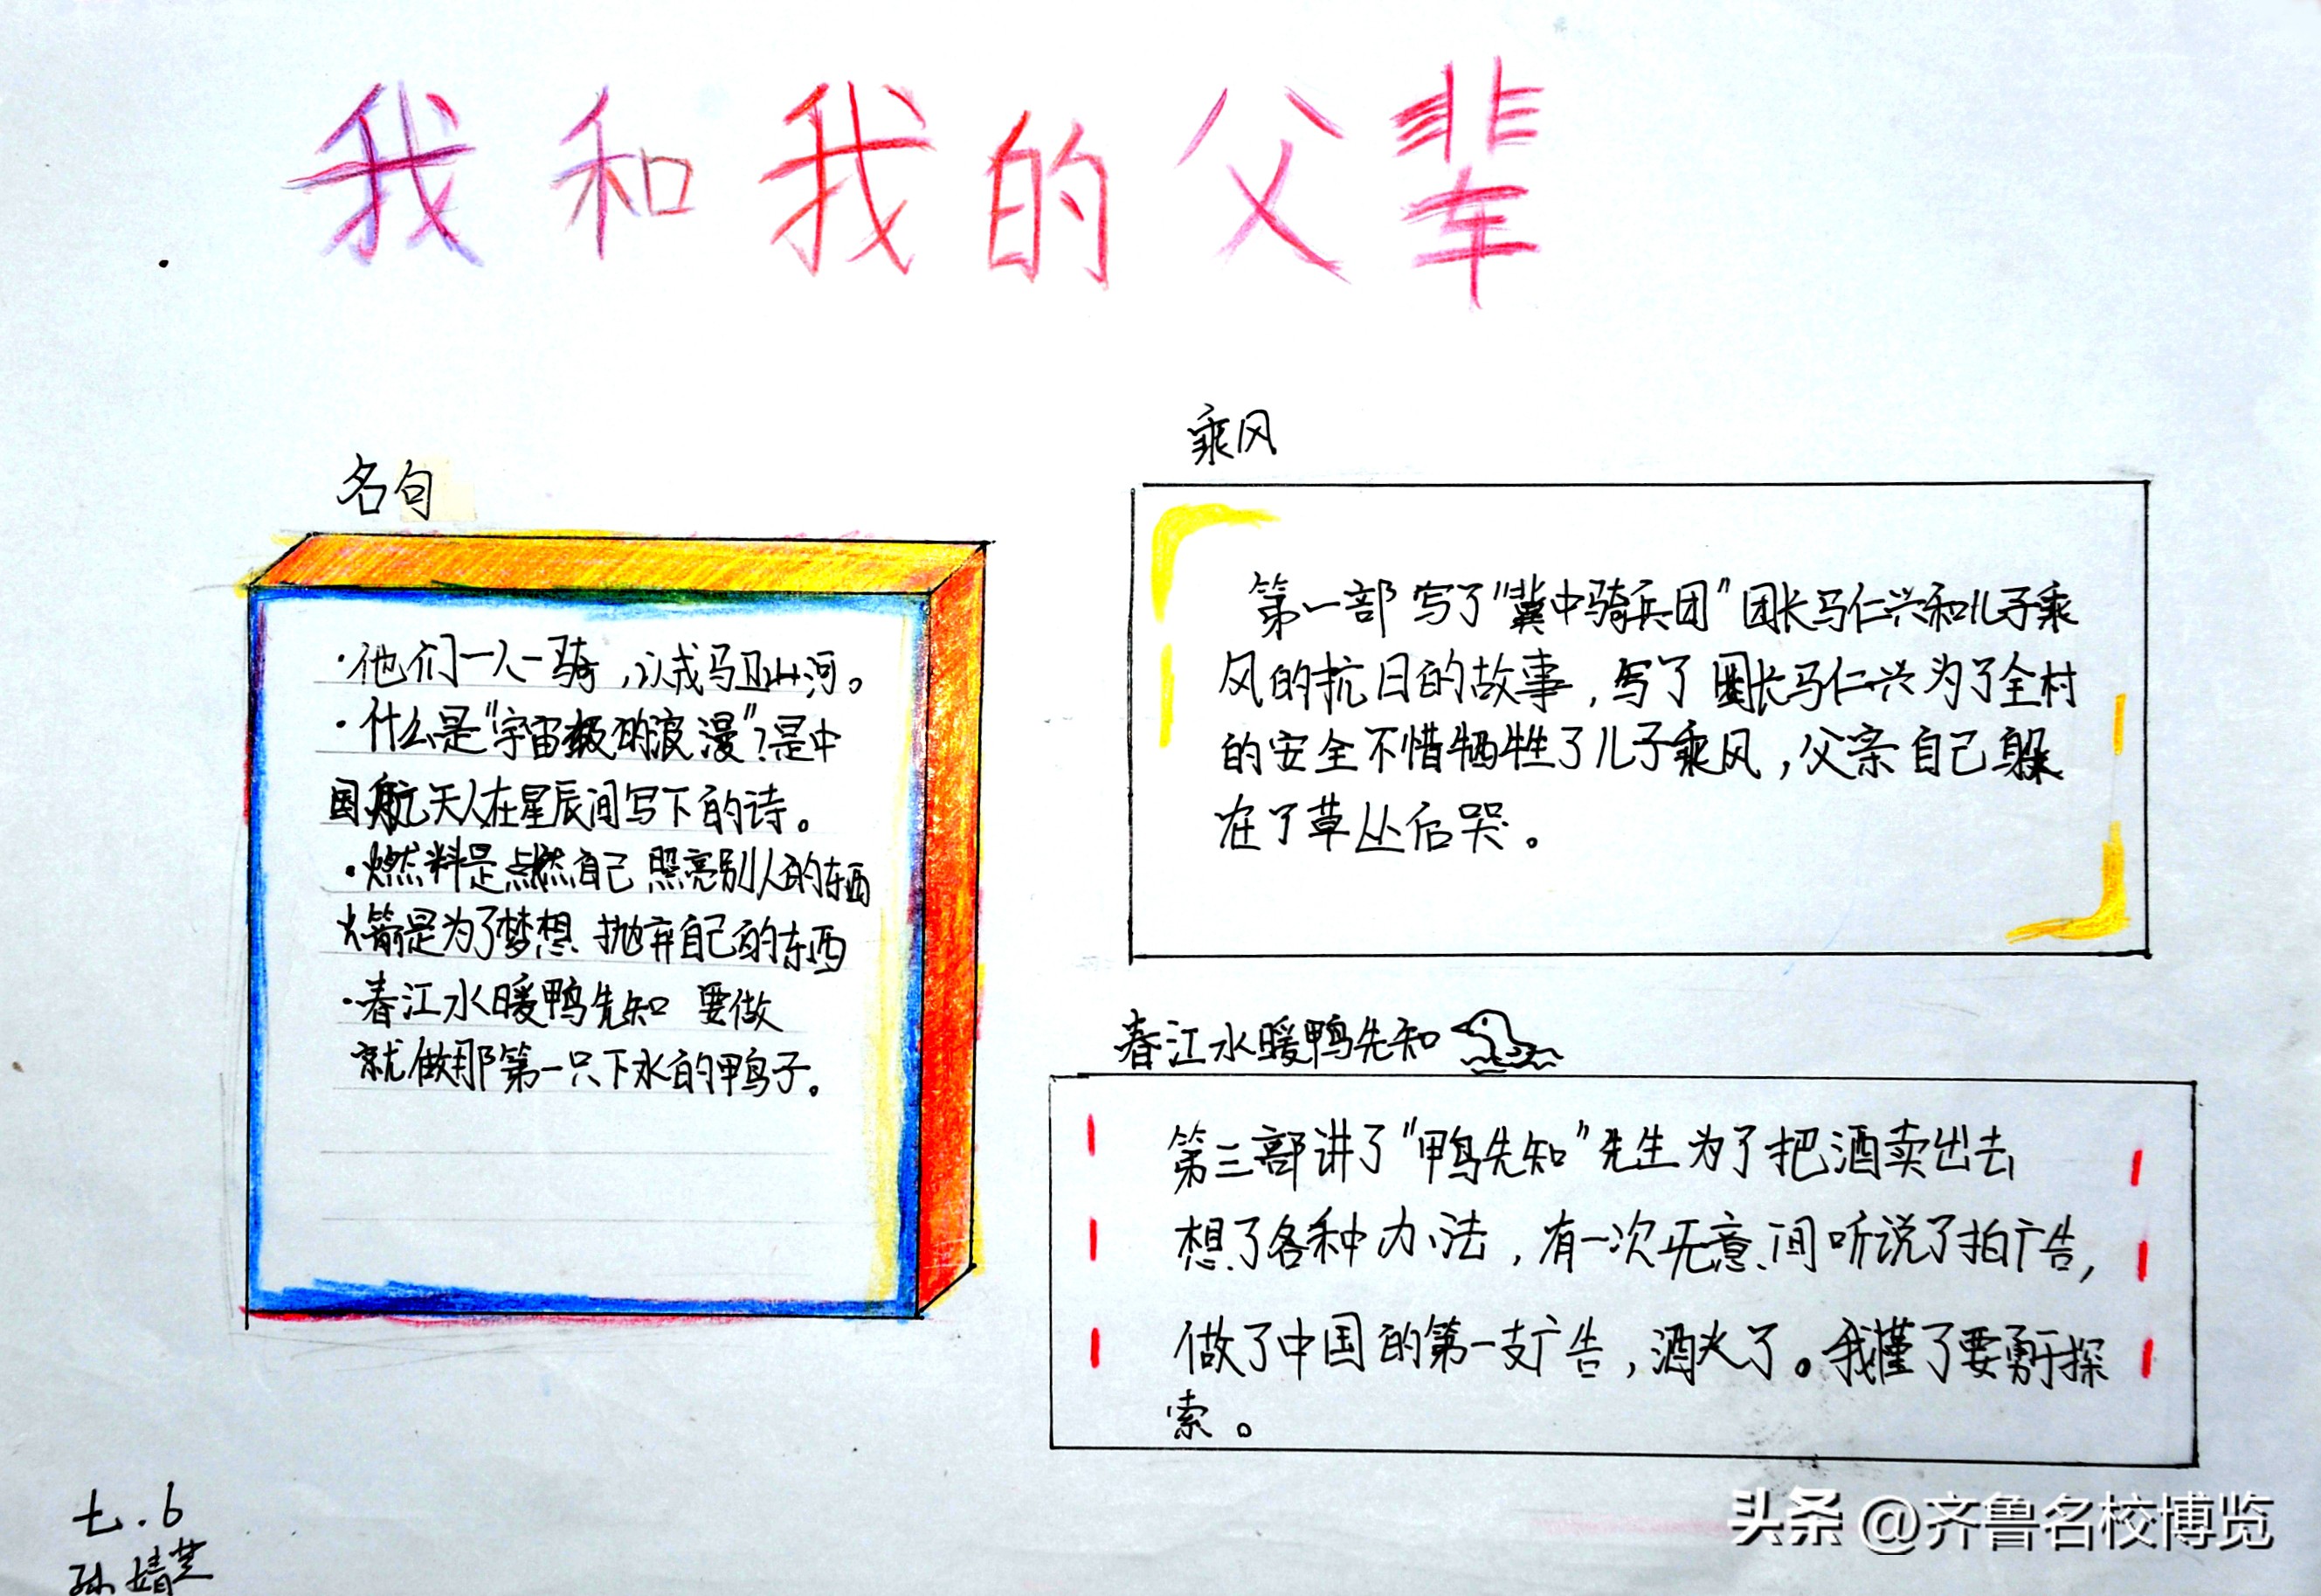 我和我的父辈
名句
·他们一人一骑，以戎马卫山河。
·什么是“宇宙级的浪漫”？是中
国航天人在星辰间写下的诗。
·燃料是点燃自己 照亮别人的东西
火箭是为了梦想 抛弃自己的东西
·春江水暖鸭先知 要做
就做那第一只下水的鸭子。
乘风
第一部写了“冀中骑兵团”团长马仁兴和儿子乘
风的抗日的故事，写了团长马仁兴为了全村
的安全不惜牺牲了儿子乘风，父亲自己躲
在了草丛后哭。
春江水暖鸭先知
第三部讲了“鸭先知”先生为了把酒卖出去
想了各种办法，有一次无意间听说了拍广告，
做了中国的第一支广告，酒火了。我懂了要勇于探
索。
七.6
孙婧芝
头条 @齐鲁名校博览